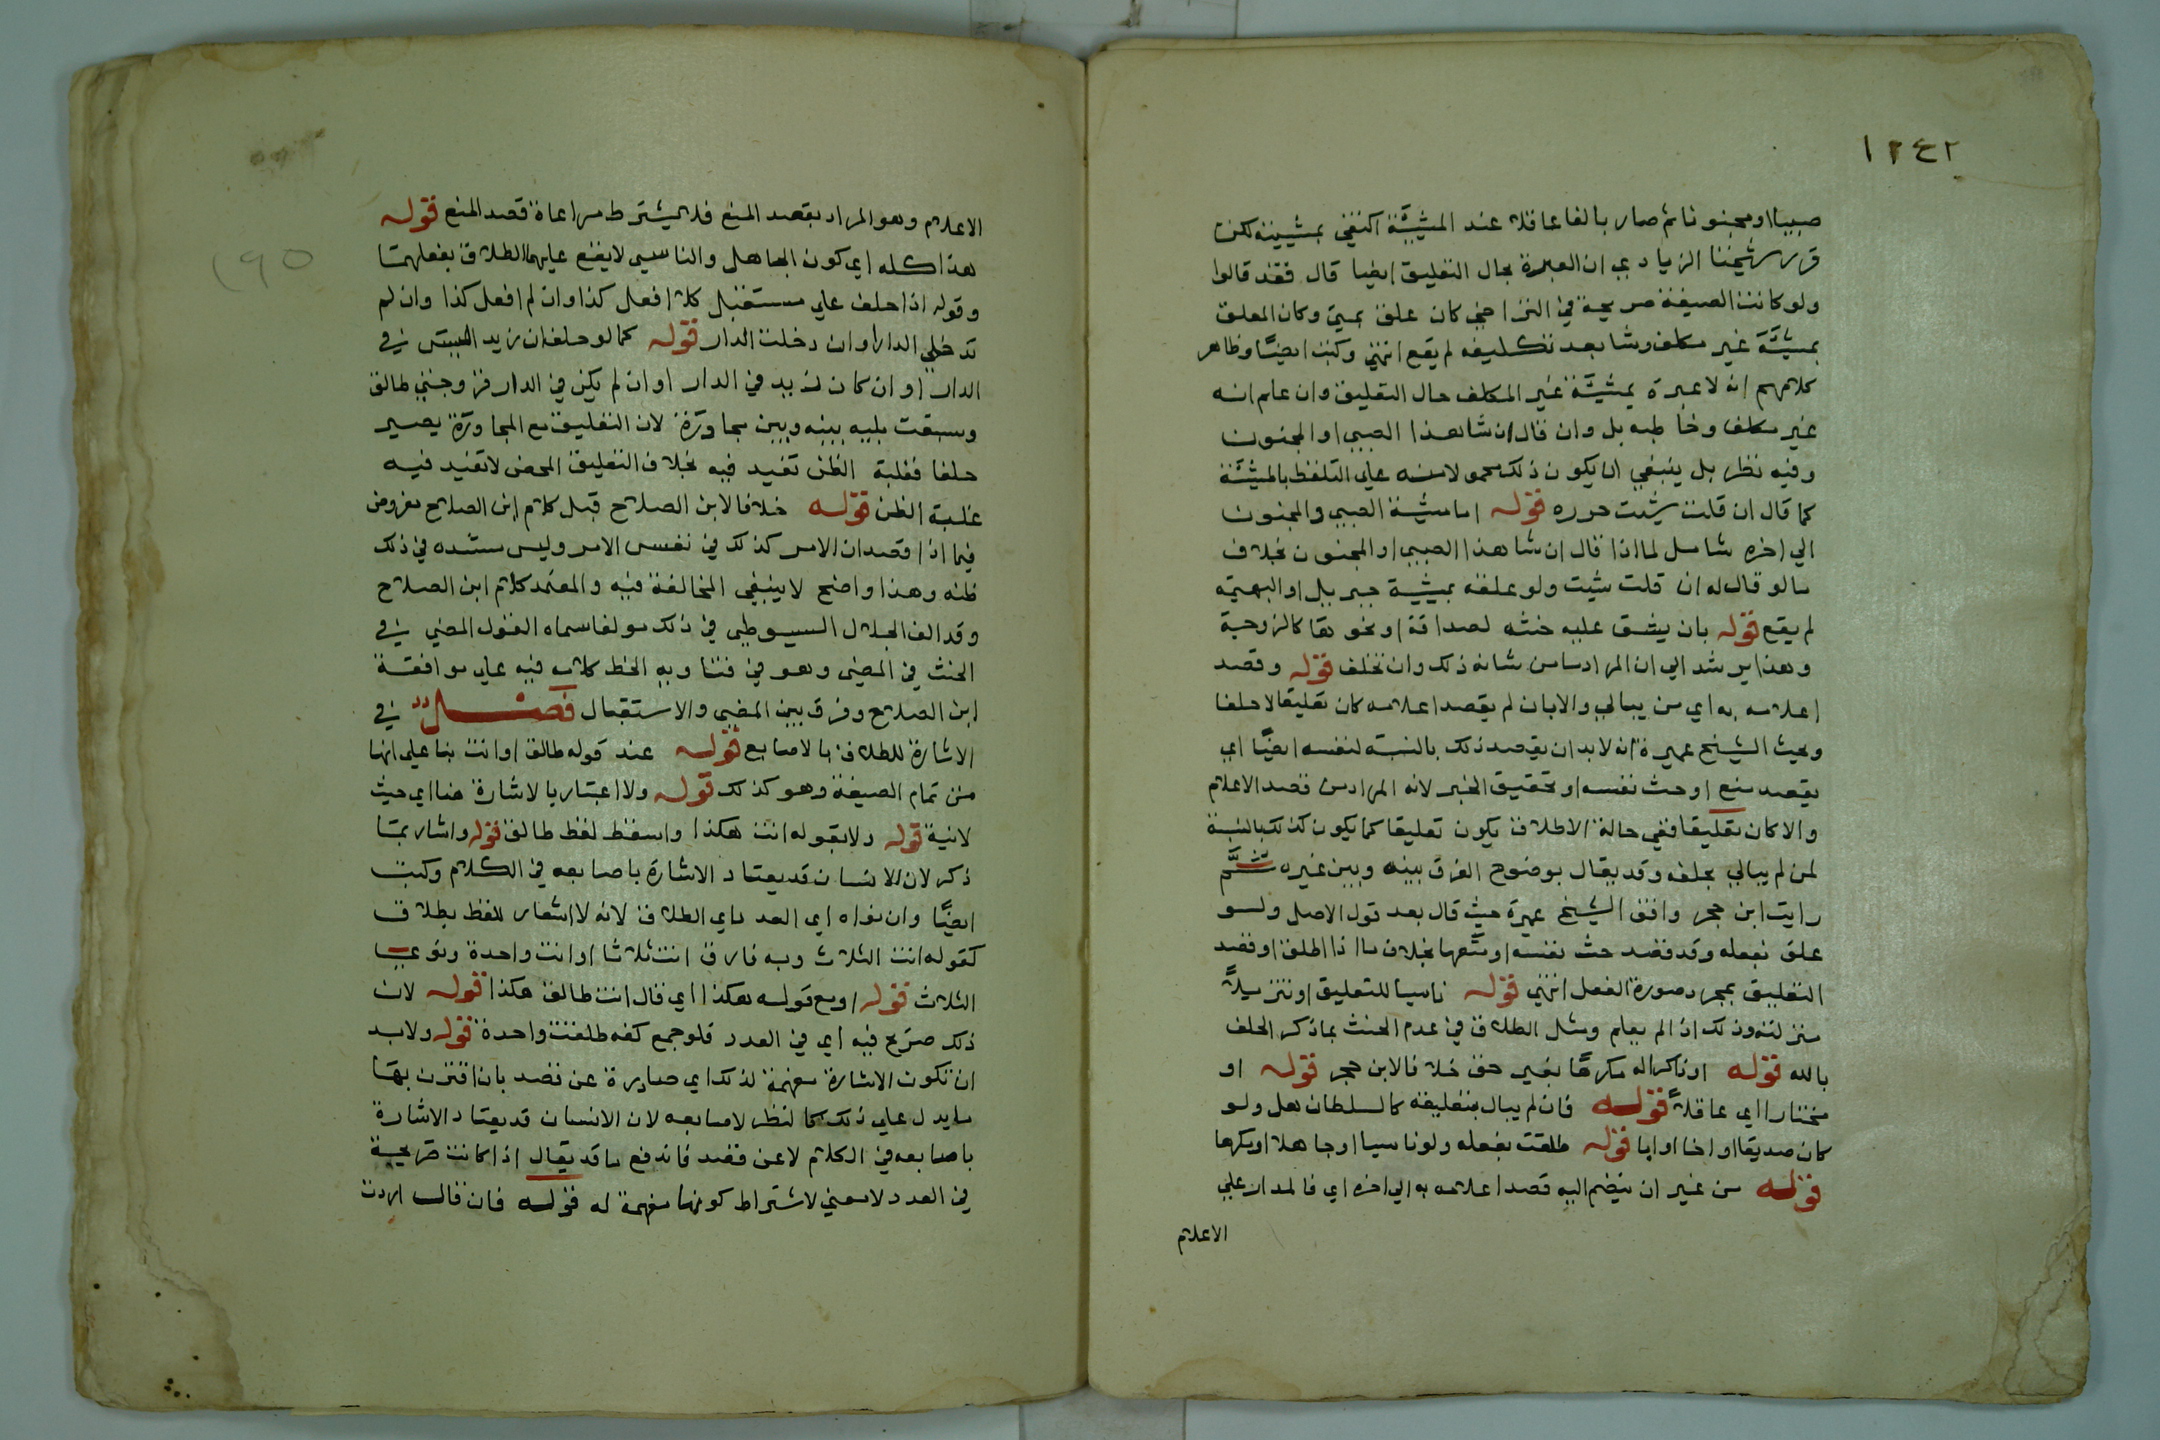 ١٢٤٢
صبيا او مجنونا ثم صار بالغا عاقلا عند المشيئة اكتفي بمشيئته لكن
قرر شيخنا الزيادي ان العبرة بحال التعليق ايضا قال فقد قالوا
ولو كانت الصيغة صريحة في التراخي كان علق بمتى وكان المعلق
بمشيئة غير مكلف وشا بعد تكليفه لم يقع انتهي وكتب ايضًا وظاهر
كلامهم انه لا عبرة بمشيئة غير المكلف حال التعليق وان علم انه
غير مكلف وخاطبه بل وان قال ان شا هذا الصبي او المجنون
وفيه نظر بل ينبغي ان يكون ذلك محمولا منه علي التلفظ بالمشيئة
كما قال ان قلت شيت حرره قوله اما مشية الصبي والمجنون
الي اخره شامل لما اذا قال ان شا هذا الصبي او المجنون بخلاف
ما لو قال له ان قلت شيت ولو علقه بمشية جبريل او البهيمة
لم يقع قوله بان يشق عليه حنثه لصداقة او نحوها كالزوجية
وهذا يرشد الي ان المراد من شانه ذلك وان تخلف قوله وقصد
اعلامه به اي من يبالي والا بان لم يقصد اعلامه كان تعليقا لا حلفا
وبحث الشيخ عميرة انه لابد ان يقصد ذلك بالنسبة لنفسه ايضًا اي
يقصد منع او حث نفسه او تحقيق الخبر لانه المراد من قصد الاعلام
والا كان تعليقا ففي حالة الاطلاق يكون تعليقا كما يكون كذلك بالنسبة
لمن لم يبالي بحلفه وقد يقال بوضوح الفرق بينه وبين غيره ثم
رايت ابن حجر وافق الشيخ عميرة حيث قال بعد قول الاصل ولو
علق بفعله وقد قصد حث نفسه او منعها بخلاف ما اذا اطلق او قصد
التعليق بمجرد صورة الفعل انتهي قوله ناسيا للتعليق او تنزيلاً
منزلته وذلك اذا لم يعلم ومثل الطلاق في عدم الحنث بما ذكر الحلف
بالله قوله او ذاكرا له مكرهًا بغير حق خلافا لابن حجر قوله او
مختارا اي عاقلاً قوله فان لم يبال بتعليقه كالسلطان هل ولو
كان صديقا او اخا او ابا قوله طلقت بفعله ولو ناسيا او جاهلا او مكرها
قوله من غير ان ينضم اليه قصد اعلامه به الي اخره اي فالمدار علي
الاعلام
١٩٥
الاعلام وهو المراد بقصد المنع فلا يشترط مراعاة قصد المنع قوله
هذا كله اي كون الجاهل والناسي لا يقع عليهما الطلاق بفعلهما
وقوله اذا حلف علي مستقبل كلا افعل كذا وان لم افعل كذا وان لم
تدخلي الدار او ان دخلت الدار قوله كما لو حلف ان زيد اليس في
الدار او ان كان زيد في الدار او ان لم يكن في الدار فزوجتي طالق
وسبقت بليه بينه وبين مجاورة لان التعليق مع المجاورة يصير
حلفا فغلبة الظن تفيد فيه بخلاف التعليق المحض لا تفيد فيه
غلبة الظن قوله خلافا لابن الصلاح قبل كلام ابن الصلاح مفروض
فيما اذا قصد ان الامر كذلك في نفس الامر وليس مستنده في ذلك
ظنه وهذا واضح لا ينبغي المخالفة فيه والمعتمد كلام ابن الصلاح
وقد الف الجلال السيوطي في ذلك مولفا سماه القول المضي في
الحنث في المضي وهو في فتاويه الخط كلامه فيه علي موافقة
ابن الصلاح وفرق بين المضي والاستقبال فصل في
الاشارة للطلاق بالاصابع قوله عند قوله طالق او انت بنا علي انها
من تمام الصيغة وهو كذلك قوله ولا اعتبار بالاشارة هنا اي حيث
لانية قوله ولا بقوله انت هكذا واسقط لفظ طالق قوله واشار بما
ذكر لان الانسان قد يعتاد الاشارة باصابعه في الكلام وكتب
ايضًا وان نواه اي العدد اي الطلاق لانه لا اشعار للفظ بطلاق
كقوله انت الثلاث وبه فارق انت ثلاثا او انت واحدة ونوي
الثلاث قوله او مع قوله هكذا اي قال انت طالق هكذا قوله لان
ذلك صريح فيه اي في العدد فلو جمع كفه طلقت واحدة قوله ولابد
ان تكون الاشارة مفهمة لذلك اي صادرة عن قصد بان اقترن بها
ما يدل علي ذلك كالنظر لاصابعه لان الانسان قد يعتاد الاشارة
باصابعه في الكلام لا عن قصد فاندفع ما قد يقال اذا كانت صريحة
في العدد لا معني لاشتراط كونها مفهمة له قوله فان قال اردت